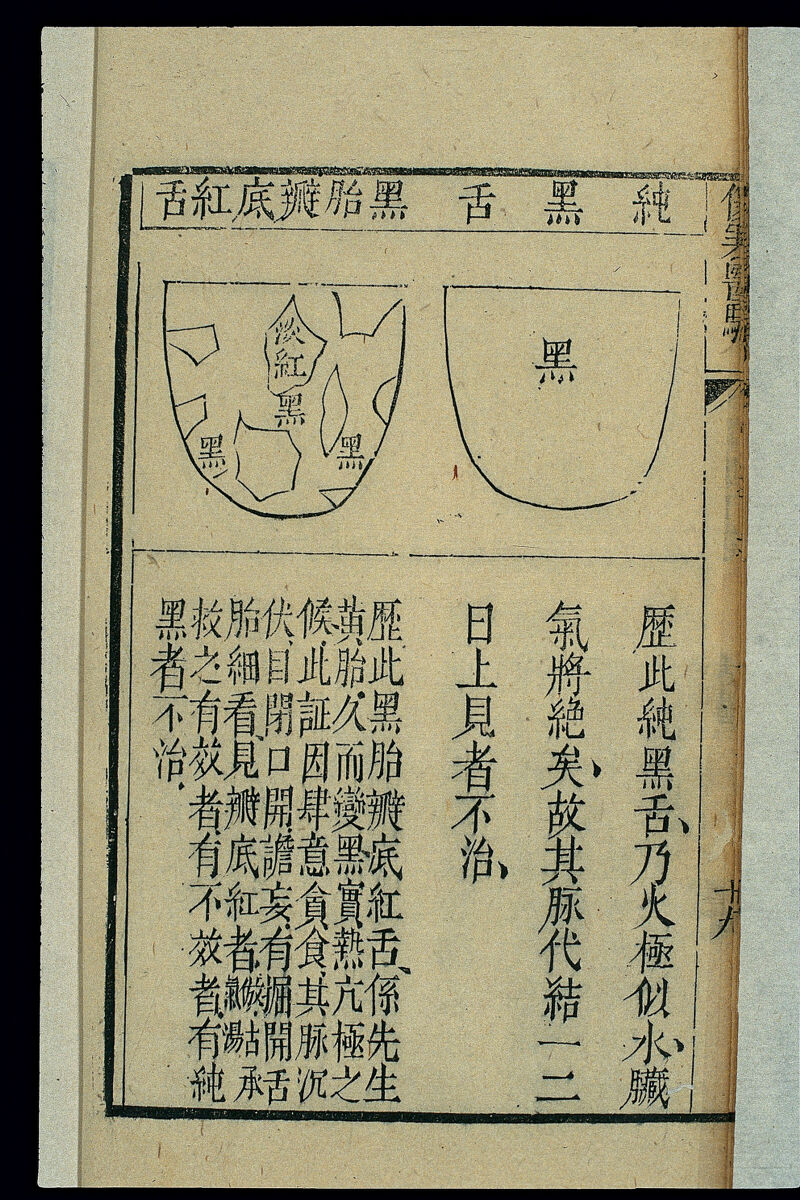 純黑舌
黑
歷此純黑舌、乃火極似水、臟
氣將絕矣、故其脉代結一二
日上見者不治、
黑胎瓣底紅舌
淡紅
黑
黑
黑
歷此黑胎瓣底紅舌、係先生
黃胎、久而變黑、實熱亢極之
候、此証因肆意貪食、其脉沉
伏、目閉口開、譫妄、有掘開舌
胎細看、見瓣底紅者、
承
救之有效者、有不效者、有純
黑者不治、
十九